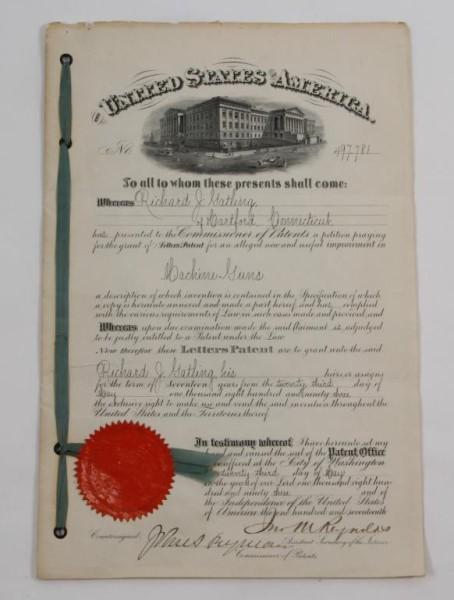 THE UNITED STATES OF AMERICA,
No 497,781
To all to whom these presents shall come:
Whereas Richard J. Gatling,
of Hartford Connecticut
has presented to the Commissioner of Patents a petition praying
for the grant of Letters Patent for an alleged new and useful improvement in
Machine-Guns
a description of which invention is contained in the Specification of which
a copy is hereunto annexed and made a part hereof, and has complied
with the various requirements of Law in such cases made and provided, and
Whereas upon due examination made the said Claimant is adjudged
to be justly entitled to a Patent under the Law.
Now therefore these Letters Patent are to grant unto the said
Richard J. Gatling, his heirs or assigns
for the term of seventeen years from the twenty third day of
May one thousand eight hundred and ninety
the exclusive right to make use and vend the said invention throughout the
United States and the Territories thereof.
In testimony whereof I have hereunto set my
hand and caused the seal of the Patent Office
to be affixed at the City of Washington
this twenty third day of May
in the year of our Lord one thousand eight hun-
dred and ninety and of
the Independence of the United States
of America the one hundred and seventeenth.
Jno M. Reynolds
Countersigned: Assistant Secretary of the Interior.
Commissioner of Patents.